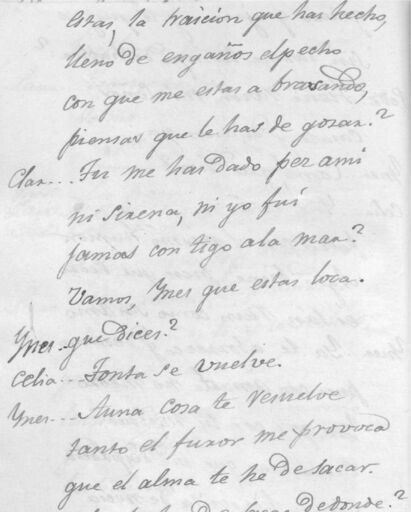 estas, la traicion que has hecho,
lleno de engaños el pecho
con que me estas abrasando,
piensas que le has de gozar?
Clar... Tu me has dado pez a mi
ni sirena, ni yo fui
jamas con tigo a la mar?
Vamos, Ynes que estas loca.
Ynes. que dices?
Celia... Tonta se vuelve.
Ynes... A una cosa te resuelve
tanto el furor me provoca
que el alma te he de sacar.
dedonde?